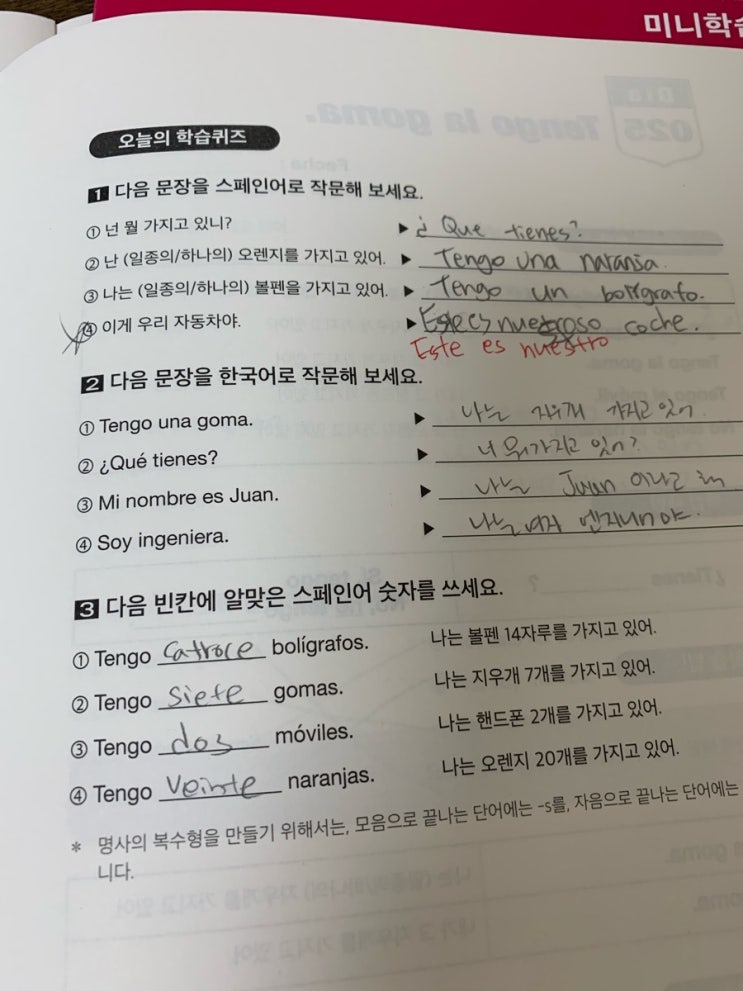 미니학습
오늘의 학습퀴즈
1 다음 문장을 스페인어로 작문해 보세요.
① 넌 뭘 가지고 있니? ▶ ¿Que tienes?
② 난 (일종의/하나의) 오렌지를 가지고 있어. ▶ Tengo una naranja.
③ 나는 (일종의/하나의) 볼펜을 가지고 있어. ▶ Tengo un bolígrafo.
④ 이게 우리 자동차야. ▶ Este es coche.
Este es nuestro
2 다음 문장을 한국어로 작문해 보세요.
① Tengo una goma. ▶ 나는 지우개 가지고 있어.
② ¿Qué tienes? ▶ 너 뭐가지고 있어?
③ Mi nombre es Juan. ▶ 나는 Juan 이라고 해
④ Soy ingeniera. ▶ 나는 여자 엔지니어야.
3 다음 빈칸에 알맞은 스페인어 숫자를 쓰세요.
① Tengo catroce bolígrafos. 나는 볼펜 14자루를 가지고 있어.
② Tengo siete gomas. 나는 지우개 7개를 가지고 있어.
③ Tengo dos móviles. 나는 핸드폰 2개를 가지고 있어.
④ Tengo veinte naranjas. 나는 오렌지 20개를 가지고 있어.
* 명사의 복수형을 만들기 위해서는, 모음으로 끝나는 단어에는 -s를, 자음으로 끝나는 단어에는
니다.